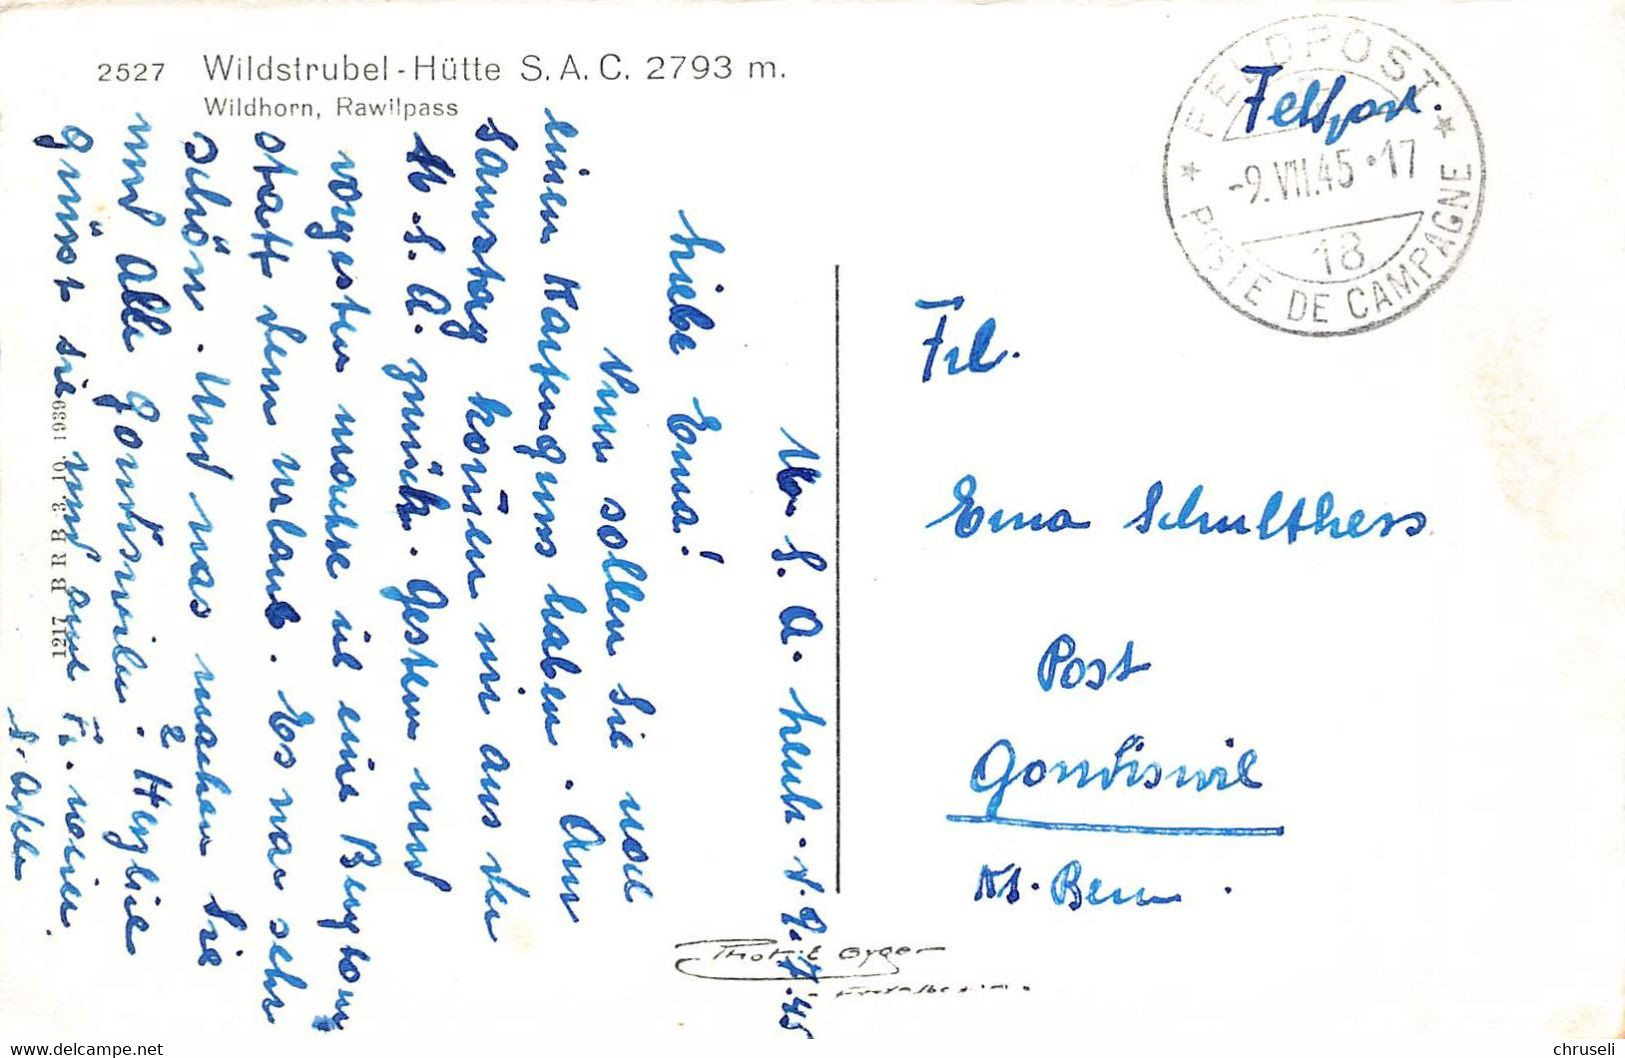 2527 Wildstrubel-Hütte S.A.C. 2793 m.
Wildhorn, Rawilpass
FELDPOST
-9.VII.45·17
18
POSTE DE CAMPAGNE
Feldpost.
U. S. A. heute. d. 9.7.45
Liebe Erna!
Nun sollen Sie noch
einen Kartengruss haben. Am
Samstag kom̄en wir aus der
U. S. A. zurück. Gestern und
vorgestern machte ich eine Bergtour
statt dem Urlaub. Es war sehr
Schön. Und was machen Sie
und alle Gondiswiler. ? Herzlich
grüsst sie und auf
Frl.
Erna Schulthess
Post
Gondiswil
Kt. Bern.
1217 BRB 3. 10. 1939
Phot. E. Gyger
Adelboden.
chruseli